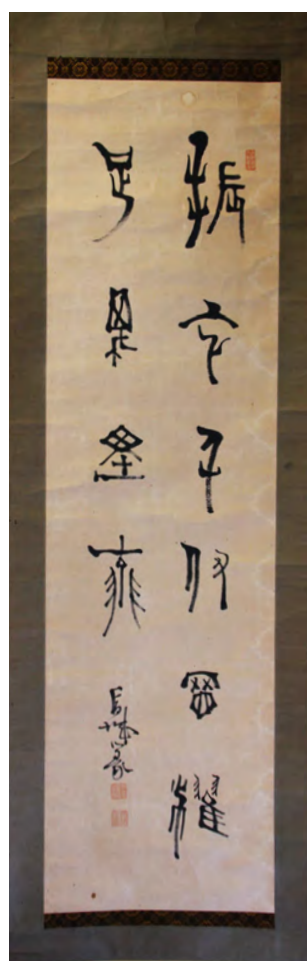 振衣千仞岡濯
足萬里流